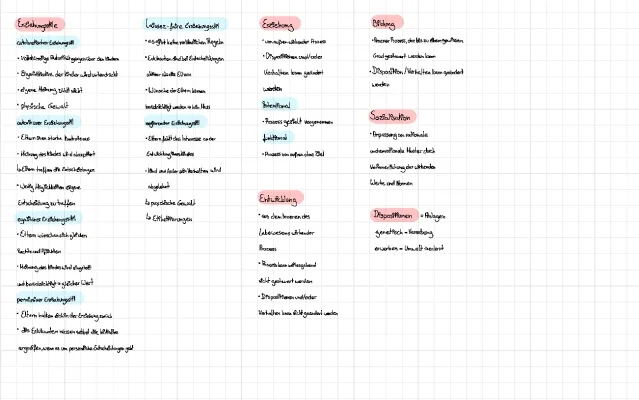 Erziehungsstile
autokratischer Erziehungsstil
• vollständige
• Eigeninitiative der Kinder wird unterdrückt
• eigene Meinung zählt nicht
• physische Gewalt
autoritärer Erziehungsstil
• Eltern üben starke Kontrolle aus
• Meinung des Kindes wird akzeptiert
↳ Eltern treffen die Entscheidungen
• wenig Möglichkeiten eigene
Entscheidung zu treffen
egalitärer Erziehungsstil
• Eltern
Rechte und Pflichten
• Meinung des Kindes wird
und berücksichtigt = gleicher Wert
permissiver Erziehungsstil
• Eltern halten sich in der Erziehung zurück
• die müssen selbst die Initiative
ergreifen, wenn es um persönliche Entscheidungen geht
Laissez-faire Erziehungsstil
• es gibt keine verbindlichen Regeln
• Entscheidungen
als die Eltern
• Wünsche der Eltern können
berücksichtigt werden = kein Muss
negierender Erziehungsstil
• Eltern fehlt das Interesse an der
Entwicklung ihres Kindes
• Kind und/oder das Verhalten wird
abgelehnt
↳ psychische Gewalt
↳
Erziehung
• von außen wirkender Prozess
• Dispositionen und/oder
Verhalten kann geändert
werden
Intentional
• Prozess gezielt vorgenommen
funktional
• Prozess von außen ohne Ziel
Entwicklung
• aus dem Inneren des
Lebewesens wirkender
Prozess
• Prozess kann weitgehend
nicht gesteuert werden
• Dispositionen und/oder
Verhalten kann nicht geändert werden
Bildung
• innerer Prozess, der bis zu einem gewissen
Grad gesteuert werden kann
• Disposition/Verhalten kann geändert
werden
Sozialisation
• Anpassung an nationale
und internationale Muster durch
Verinnerlichung der wirkenden
Werte und Normen
Dispositionen = Anlagen
genetisch = Vererbung
erworben = Umwelt